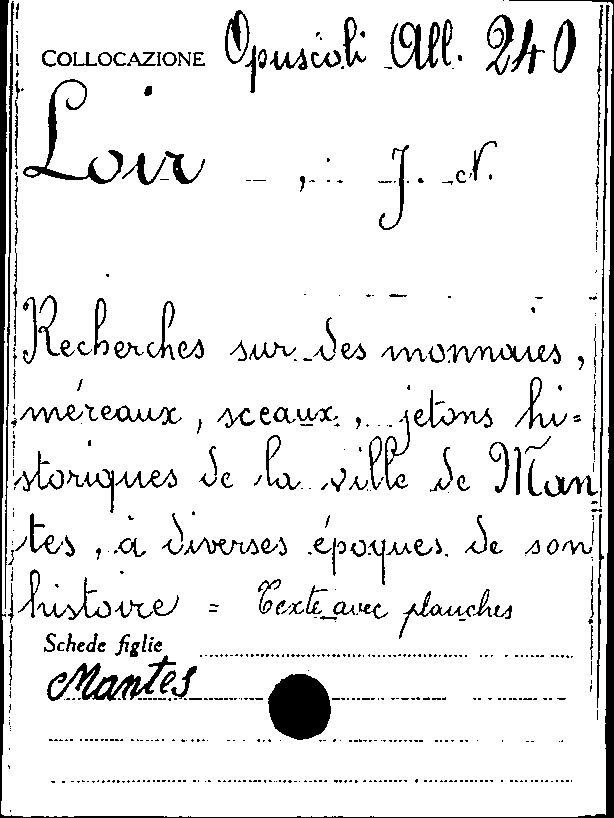 COLLOCAZIONE Opuscoli All. 240
Loir, J. N.
Recherches sur des monnaies,
méreaux, sceaux, jetons hi=
storiques de la ville de Man
tes, à diverses époques de son
histoire = Texte avec planches
Schede figlie
Mantes